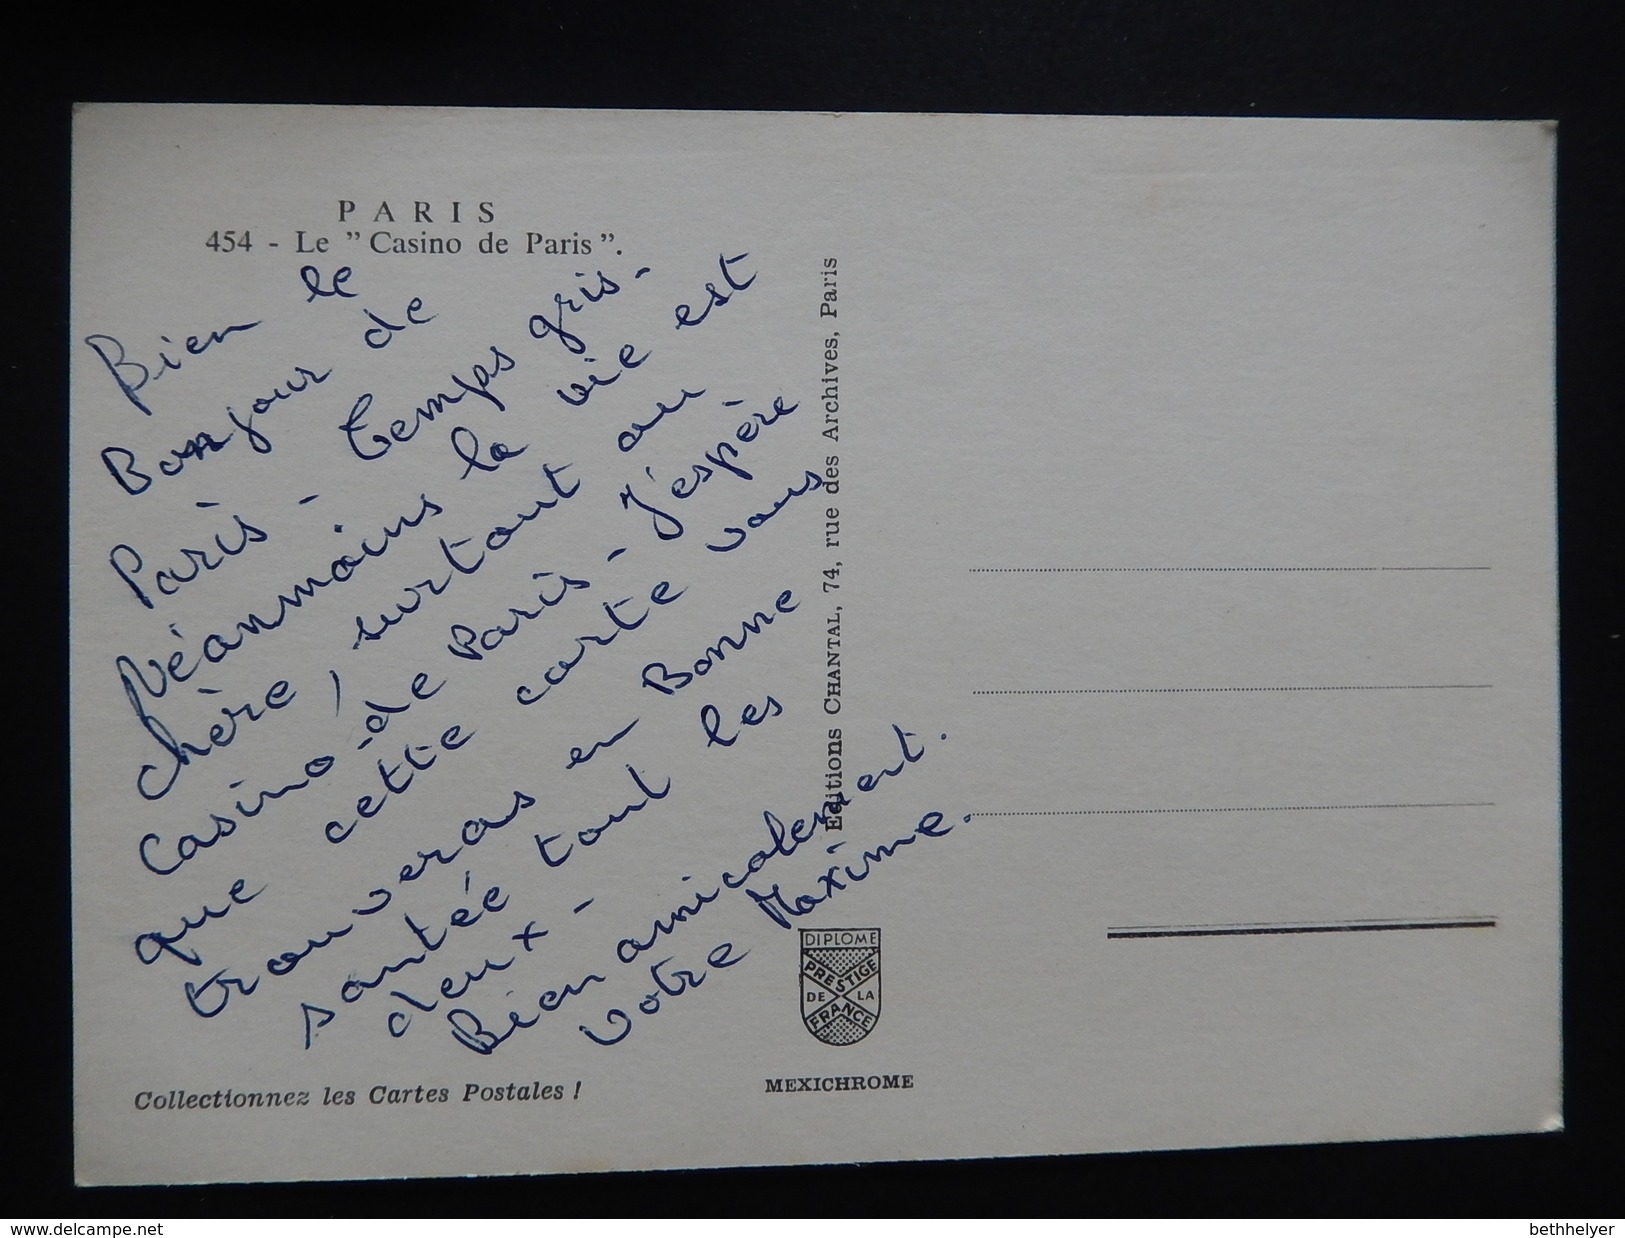 PARIS
454 - Le "Casino de Paris".
Bien le
Bonjour de
Paris - temps gris -
Néanmoins la vie est
chère, surtout au
Casino-de Paris - J'espère
que cette carte vous
trouveras en Bonne
santée tout les
deux -
Bien amicalement.
Votre Maxime.
Editions CHANTAL, 74, rue des Archives, Paris
DIPLOME
PRESTIGE
DE LA
FRANCE
MEXICHROME
Collectionnez les Cartes Postales !
www.delcampe.net
bethhelyer